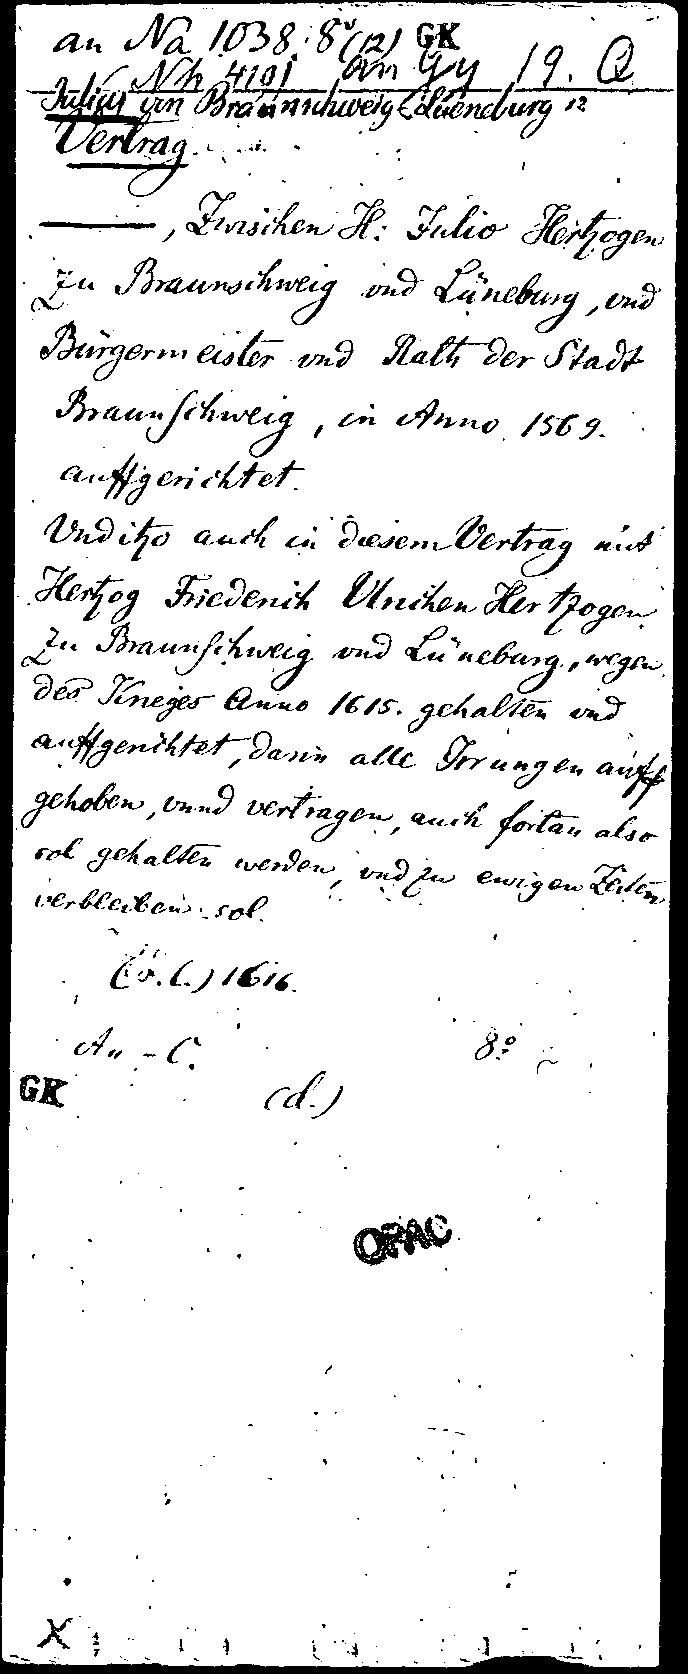 an Na 1038: 8° (12) GK
Nh 4101 an Gy 19. Q
Julius von Braunschweig-Lüneburg 12
Vertrag
———, Zwischen H: Julio Hertzogen
zu Braunschweig vnd Lüneburg, vnd
Bürgermeister vnd Rath der Stadt
Braunschweig, in Anno 1569.
auffgerichtet.
Vnd itzo auch in diesem Vertrag mit
Hertzog Friederich Ulrichen Hertzogen
zu Braunschweig vnd Lüneburg, wegen
des Krieges Anno 1615. gehalten vnd
auffgerichtet, darin alle Irrungen auff
gehoben, vnnd vertragen, auch fortan also
sol gehalten werden, vnd zu ewigen Zeiten
verbleiben sol.
(o. O.) 1616.
An - C. 8°
GK (d.)
OPAC
X